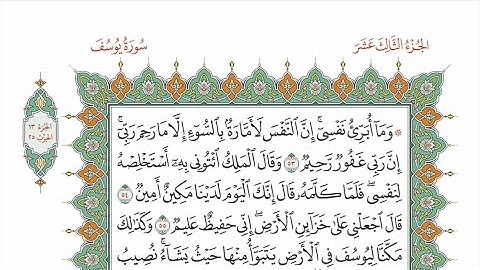 الجُزْءُ الثَّالِثَ عَشَرَ
سُورَةُ يُوسُفَ
الجُزْءُ ١٣
الحِزْبُ ٢٥
۞ وَمَآ أُبَرِّئُ نَفْسِيٓۚ إِنَّ ٱلنَّفْسَ لَأَمَّارَةُۢ بِٱلسُّوٓءِ إِلَّا مَا رَحِمَ رَبِّيٓۚ
إِنَّ رَبِّي غَفُورٞ رَّحِيمٞ ٥٣ وَقَالَ ٱلْمَلِكُ ٱئْتُونِي بِهِۦٓ أَسْتَخْلِصْهُ
لِنَفْسِيۖ فَلَمَّا كَلَّمَهُۥ قَالَ إِنَّكَ ٱلْيَوْمَ لَدَيْنَا مَكِينٌ أَمِينٞ ٥٤
قَالَ ٱجْعَلْنِي عَلَىٰ خَزَآئِنِ ٱلْأَرْضِۖ إِنِّي حَفِيظٌ عَلِيمٞ ٥٥ وَكَذَٰلِكَ
مَكَّنَّا لِيُوسُفَ فِي ٱلْأَرْضِ يَتَبَوَّأُ مِنْهَا حَيْثُ يَشَآءُۚ نُصِيبُ